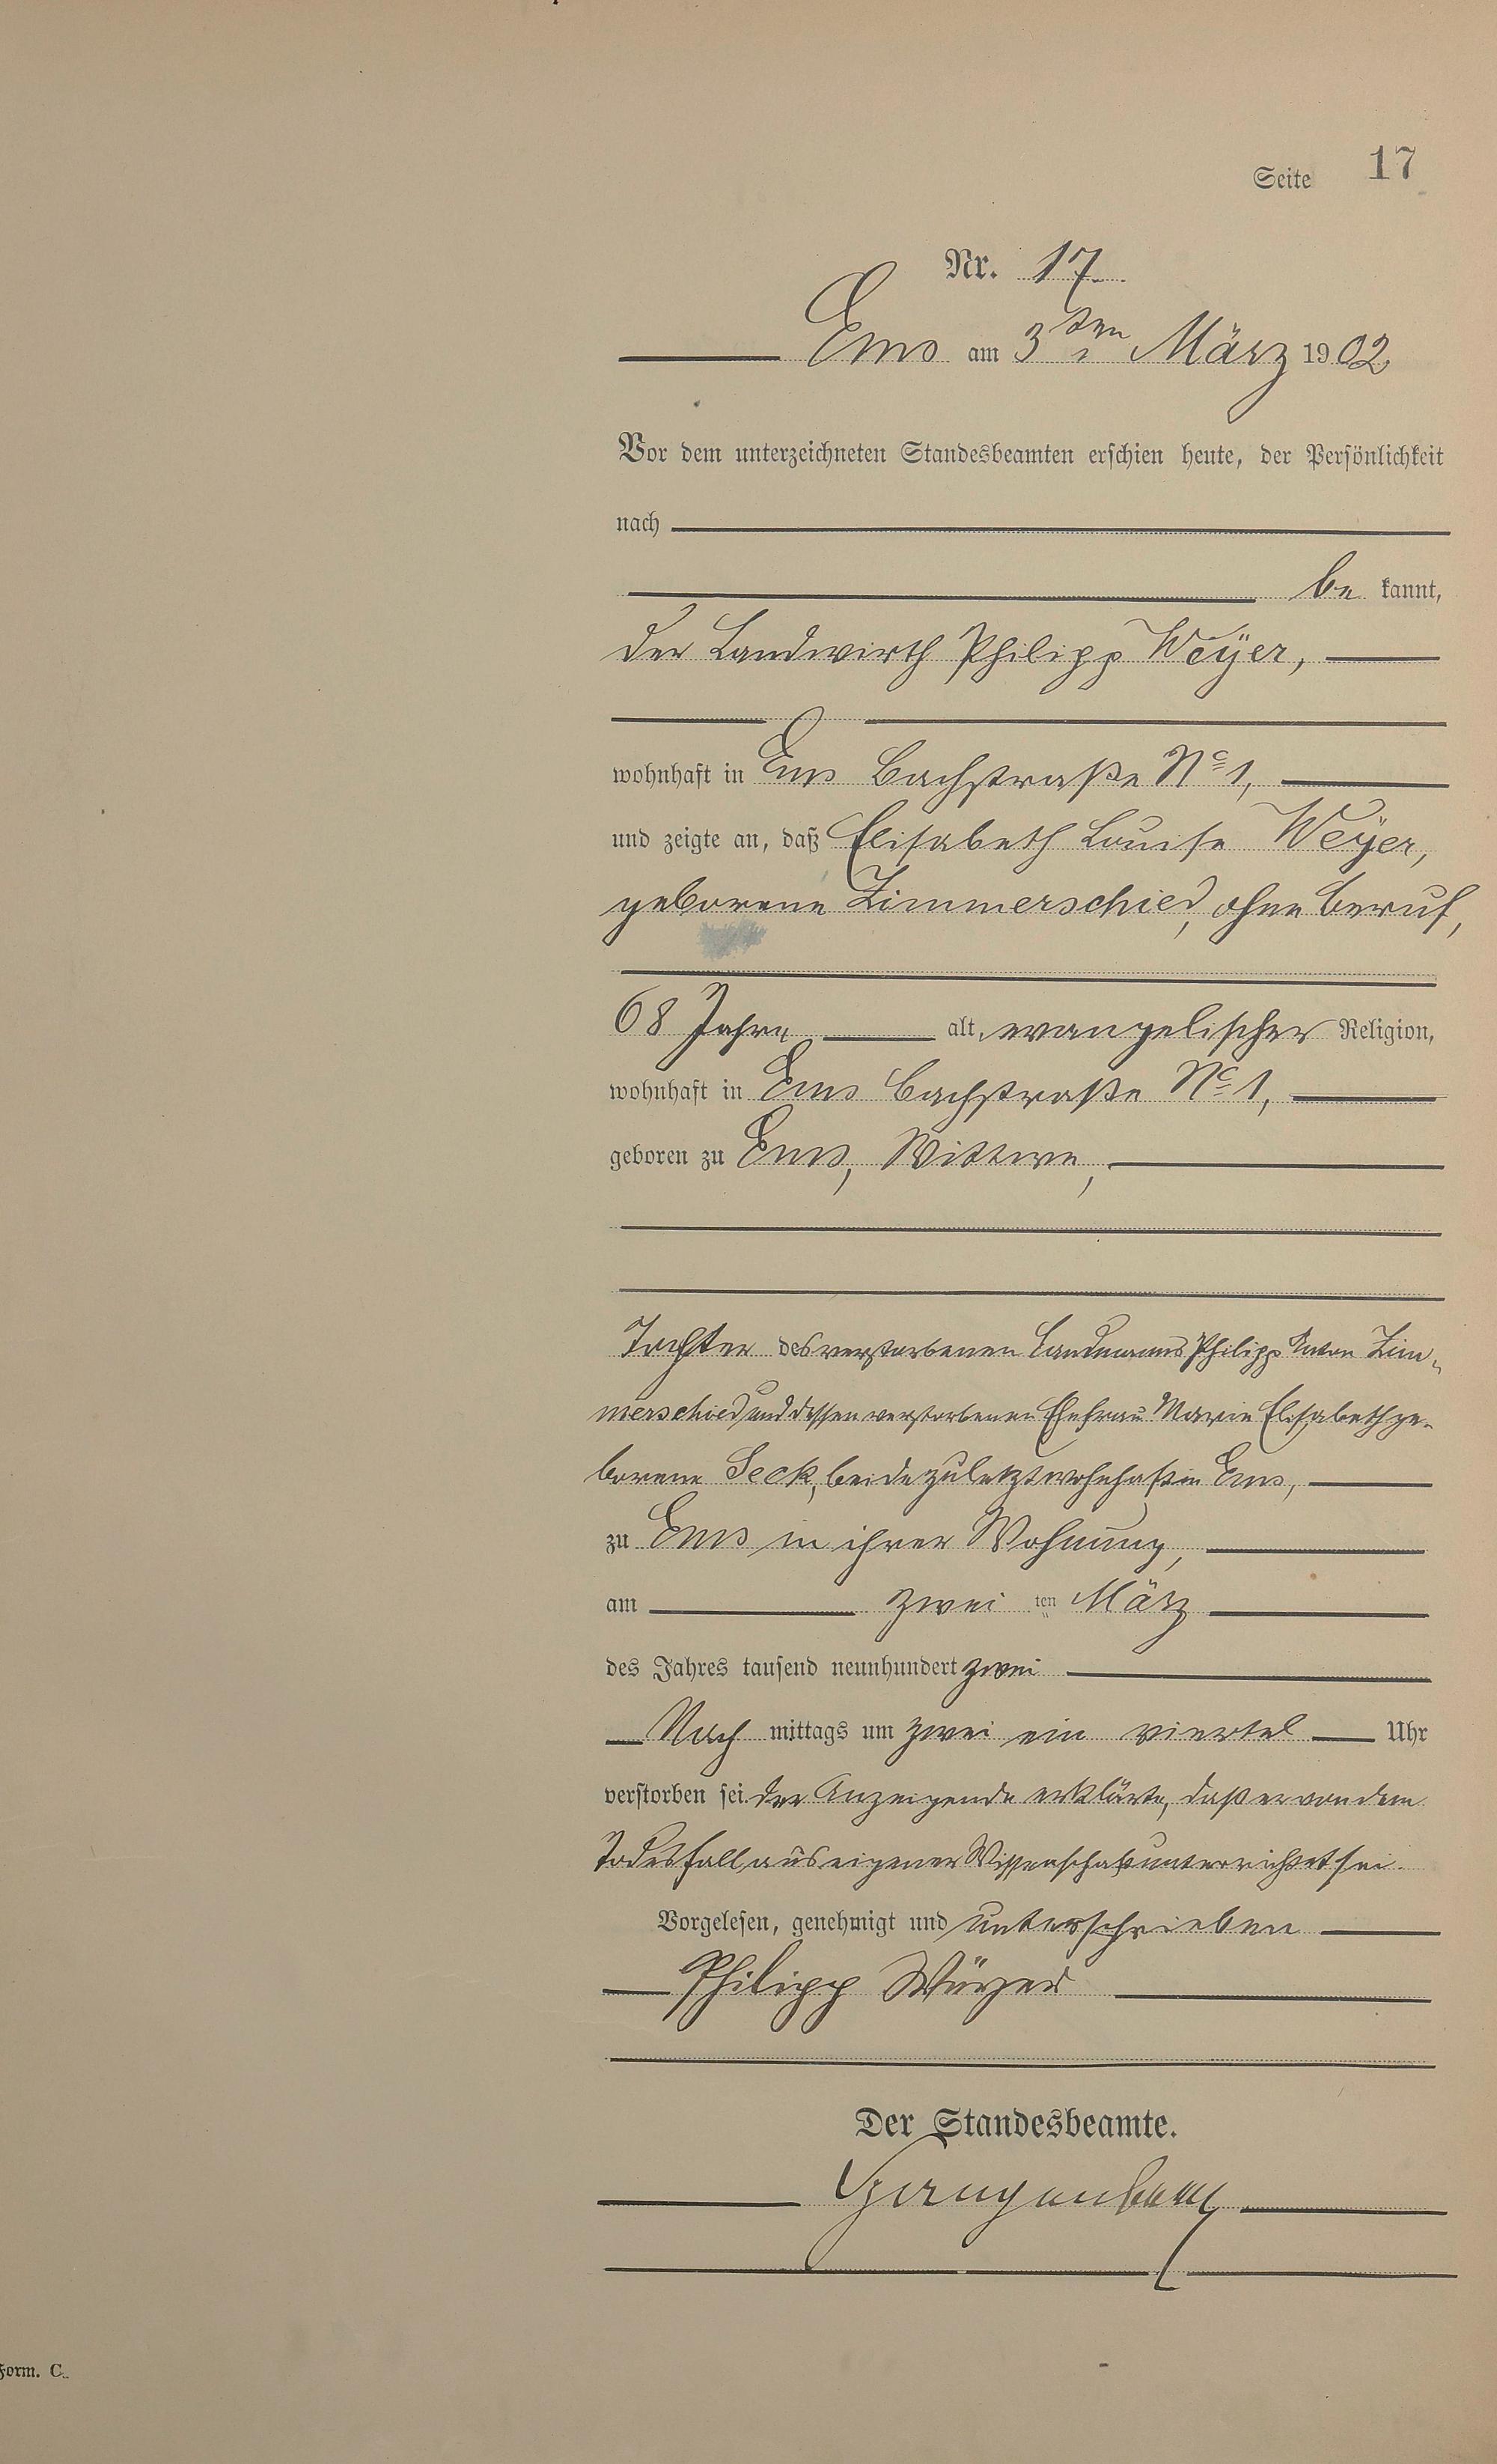 Seite 17
Nr. 17
Ems am 3ten März 1902
Vor dem unterzeichneten Standesbeamten erschien heute, der Persönlichkeit
nach
be kannt,
der Landwirth Philipp Weÿer,
wohnhaft in Ems Bachstraße No 1,
und zeigte an, daß Elisabeth Louise Weÿer,
geborene Zimmerschied, ohne Beruf,
68 Jahre alt, evangelischer Religion,
wohnhaft in Ems Bachstraße No 1,
geboren zu Ems, Wittwe,
Tochter des verstorbenen Landmanns Philipp Anton Zim-
merschied und dessen verstorbenen Ehefrau Marie Elisabeth ge-
borene Seck, beide zuletzt wohnhaft in Ems,
zu Ems in ihrer Wohnung,
am zwei ten März
des Jahres tausend neunhundert zwei
Nach mittags um zwei ein viertel Uhr
verstorben sei. Der Anzeigende erklärte, daß er von dem
Todesfall aus eigener Wissenschaft unterrichtet sei.
Vorgelesen, genehmigt und unterschrieben
Philipp
Der Standesbeamte.
Form. C.